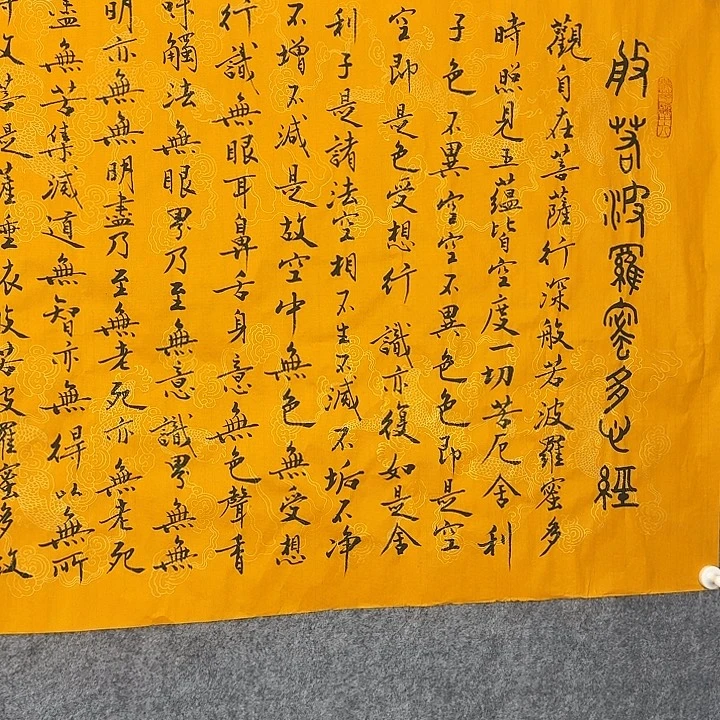 般若波羅蜜多心經
觀自在菩薩行深般若波羅蜜多
時照見五蘊皆空度一切苦厄舍利
子色不異空空不異色色即是空
空即是色受想行識亦復如是舍
利子是諸法空相不生不滅不垢不净
不增不減是故空中無色無受想
行識無眼耳鼻舌身意無色聲香
味觸法無眼界乃至無意識界無無
明亦無無明盡乃至無老死亦無老死
盡無苦集滅道無智亦無得以無所
故菩提薩埵依般若波羅蜜多故